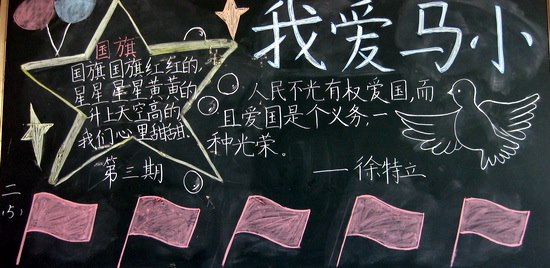 我爱马小
国旗
国旗国旗红红的,
星星星星黄黄的
升上天空高高的
我们心里甜甜.
第三期
人民不光有权爱国,而
且爱国是个义务,一
种光荣。
——徐特立
二
(5)